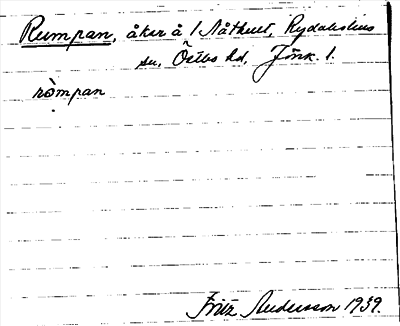 Rumpan, åker å 1 Nåthult, Rydaholms
sn, Östbo hd, Jönk. l.
ròmpan
Fritz Andersson 1939.